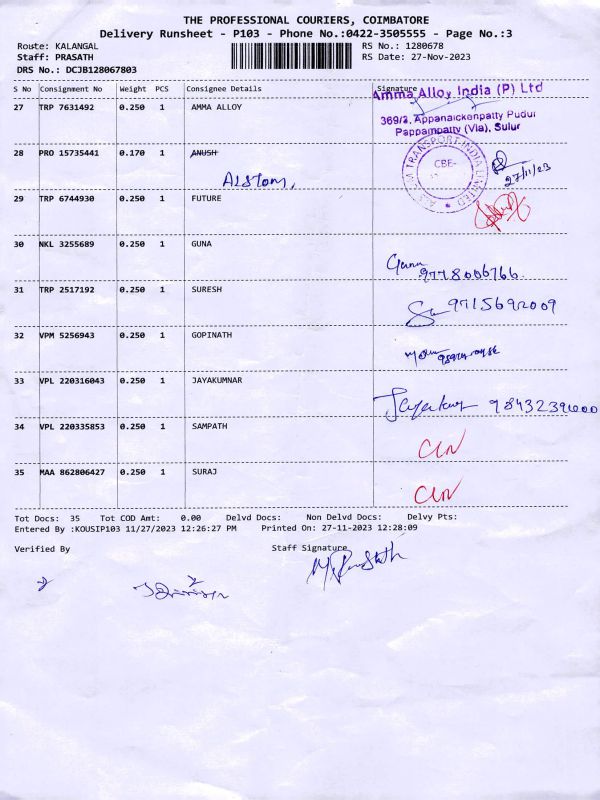 THE PROFESSIONAL COURIERS, COIMBATORE
Delivery Runsheet - P103 - Phone No.:0422-3505555 - Page No.:3
Route: KALANGAL RS No.: 1280678
Staff: PRASATH RS Date: 27-Nov-2023
DRS No.: DCJB128067803
S No Consignment No Weight PCS Consignee Details Signature
Amma Alloy India (P) Ltd
27 TRP 7631492 0.250 1 AMMA ALLOY
369/2, Appanaickenpatty Pudur
Pappampatty (Via), Sulur
28 PRO 15735441 0.170 1 ANUSH
TRANSPORT INDIA LIMITED
CBE-
27/11/23
Alstom,
29 TRP 6744930 0.250 1 FUTURE
30 NKL 3255689 0.250 1 GUNA
Guna
9778006766
31 TRP 2517192 0.250 1 SURESH
9715692009
32 VPM 5256943 0.250 1 GOPINATH
33 VPL 220316043 0.250 1 JAYAKUMNAR
34 VPL 220335853 0.250 1 SAMPATH
35 MAA 862806427 0.250 1 SURAJ
Tot Docs: 35 Tot COD Amt: 0.00 Delvd Docs: Non Delvd Docs: Delvy Pts:
Entered By :KOUSIP103 11/27/2023 12:26:27 PM Printed On: 27-11-2023 12:28:09
Verified By Staff Signature